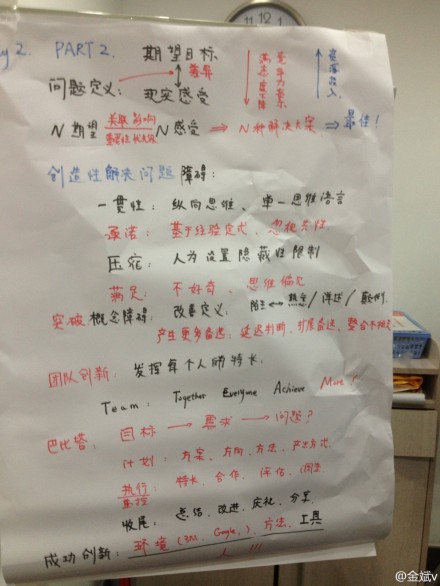 11 12 1
y 2. PART 2. 期望目标
问题定义: 差异
现实感受
N 期望 关联 影响 N 感受 ⇒ N 种解决方案 ⇒ 最佳!
创造性解决问题障碍:
一贯性: 纵向思维、单一思维语言
承诺: 基于经验定式、忽视共性
压缩: 人为设置隐藏性限制
满足: 不好奇、思维偏见
突破概念障碍: 改善定义、
产生更多备选: 延迟判断、扩展备选、
团队创新: 发挥每个人的特长.
Team: Together Everyone Achieve More!
巴比塔: 目标 → 需求 → 问题?
计划: 方案、方向、方法、产出方式
执行: 特长、合作、评估、调整
管理
收尾: 总结、改进、庆祝、分享.
成功创新: 环境 (3M, Google,)、方法、工具
人 !!!
@金斌v